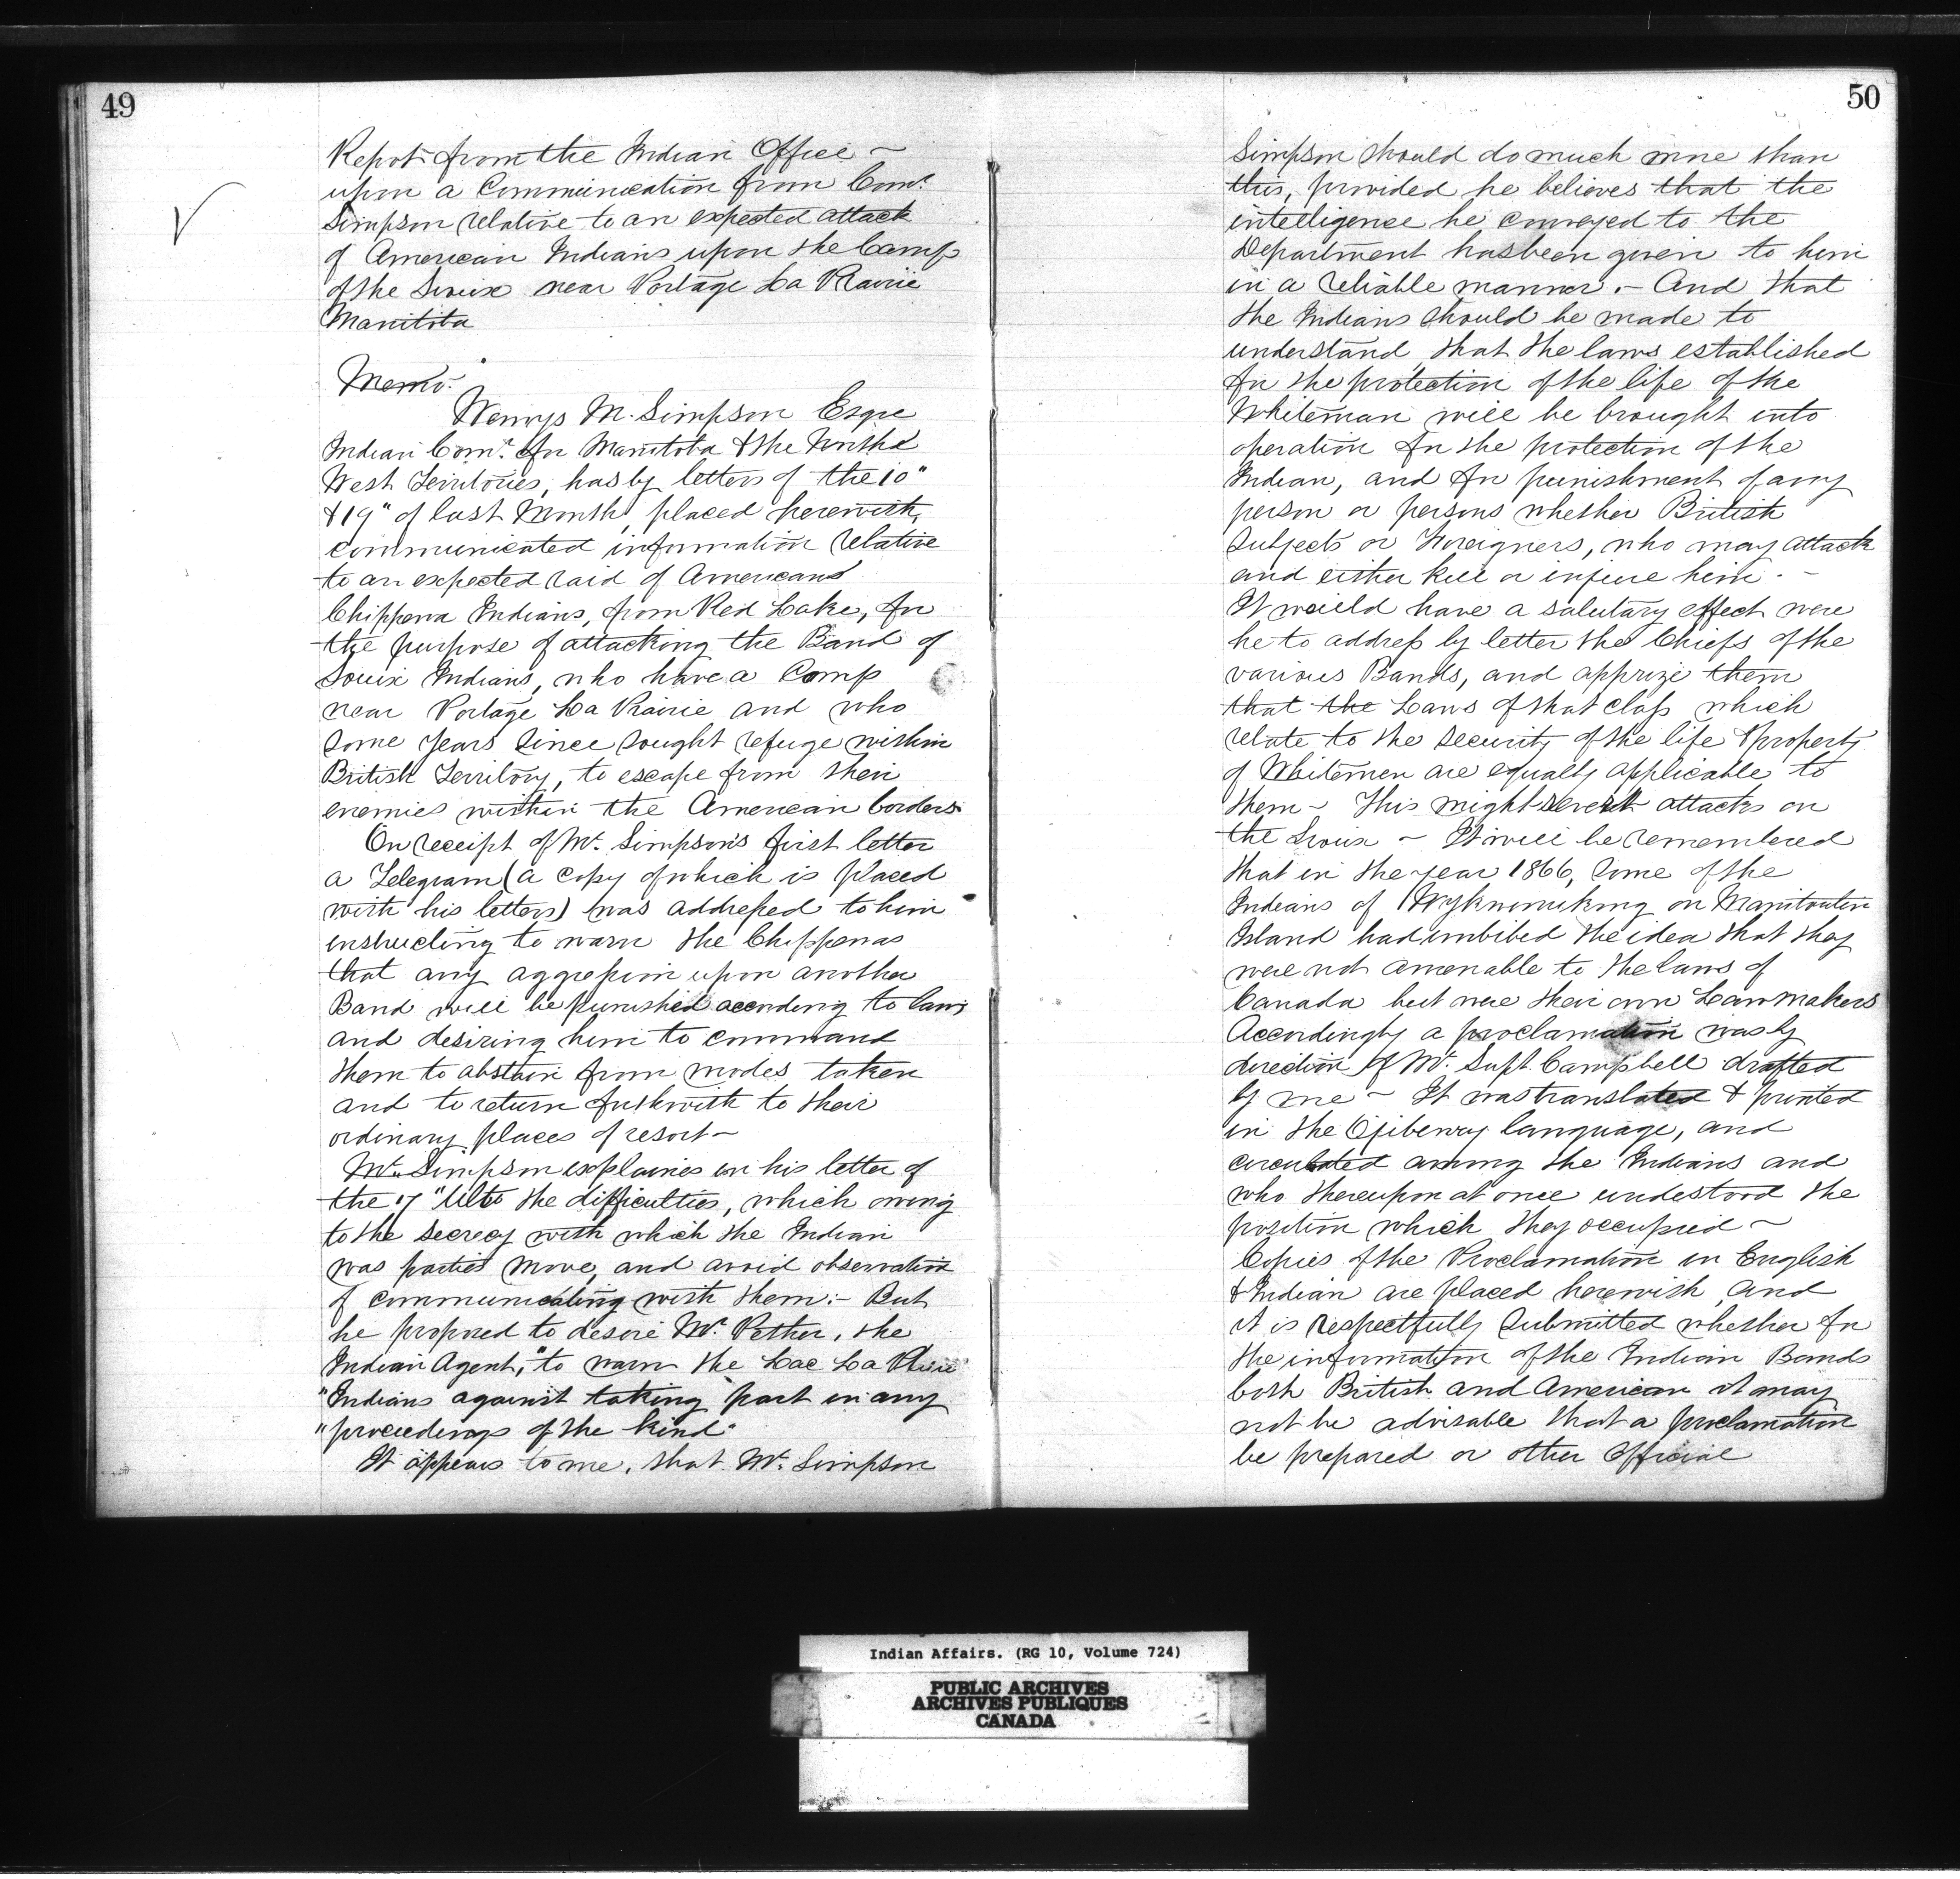 49
Report from the Indian Office ~
upon a Communication from Comr.
Simpson relative to an expected attack
of American Indians upon the Camp
of the Sioux near Portage La Prairie
Manitoba
Memo.
Wemyss M. Simpson Esqre
Indian Comr. for Manitoba & the North
West Territories, has by letters of the 10"
& 19" of last Month, placed herewith,
communicated information relative
to an expected raid of American
Chippewa Indians, from Red Lake, for
the purpose of attacking the Band of
Souix Indians, who have a Camp
near Portage La Prairie and who
some years since sought refuge within
British Territory, to escape from their
enemies within the American borders.
On receipt of Mr. Simpson's first letter
a Telegram (a copy of which is placed
with his letters) was addressed to him
instructing to warn the Chippewas
that any aggression upon another
Band will be punished according to law,
and desiring him to command
them to abstain from modes taken
and to return forthwith to their
ordinary places of resort ~
Mr. Simpson explaines in his letter of
the 17" Ulto the difficulties, which owing
to the secrecy with which the Indian
was parties move, and avoid observation
of communicating with them:- But
he proposed to desire Mr. Pether, the
Indian Agent, "to warn the Lac La Pluie
"Indians against taking part in any
"proceedings of the kind"
It appears to me, that Mr. Simpson
50
Simpson should do much more than
this, provided he believes that the
intelligence he conveyed to the
Department has been given to him
in a reliable manner. - And that
the Indians should be made to
understand that the laws established
for the protection of the life of the
Whiteman will be brought into
operation for the protection of the
Indian, and for punishment of any
person or persons whether British
Subjects or Foreigners, who may attack
and either kill or injure him. -
It would have a salutary effect were
he to address by letter the Chiefs of the
various Bands, and apprize them
that the Laws of that class which
relate to the security of the life & property
of Whitemen are equally applicable to
them ~ This might attacks on
the Sioux ~ It will be remembered
that in the year 1866, some of the
Indians of on Manitoulin
Island had imbibed the idea that they
were not amenable to the laws of
Canada but were their own Lawmakers
Accordingly a proclamation was by
direction of Mr. Supt. Campbell drafted
by me ~ It was translated & printed
in the Ojibeway language, and
circulated among the Indians and
who thereupon at once undestood the
position which they occupied ~
Copies of the Proclamation in English
& Indian are placed herewith, and
it is respectfully submitted whether for
the information of the Indian Bands
both British and American it may
not be advisable that a proclamation
be prepared or other Official
Indian Affairs. (RG 10, Volume 724)
PUBLIC ARCHIVES
ARCHIVES PUBLIQUES
CANADA